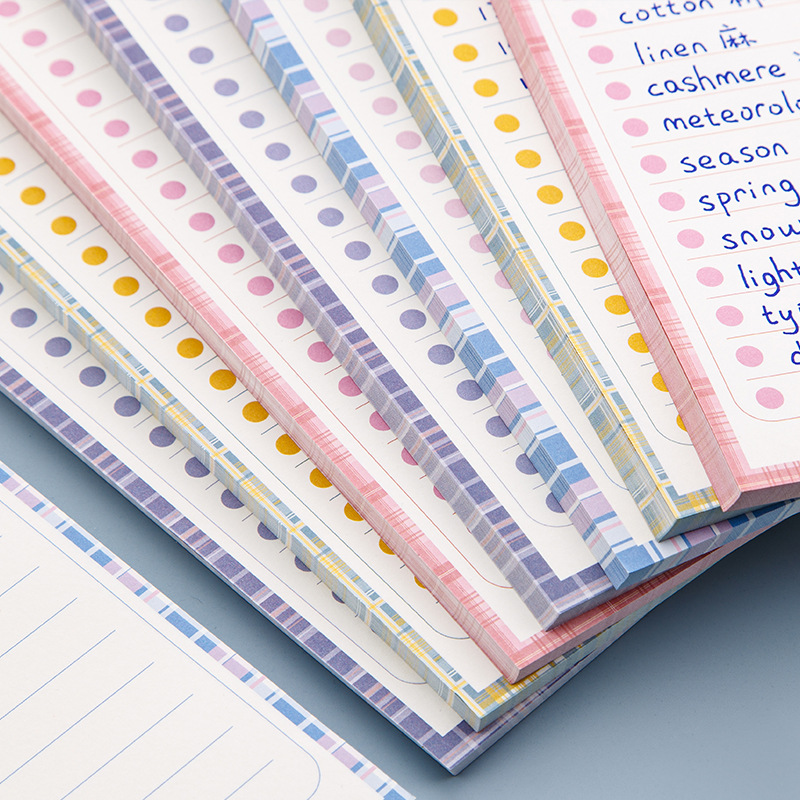 cotton
linen 麻
cashmere
meteorolo
season
spring
snow
light
tyi
d